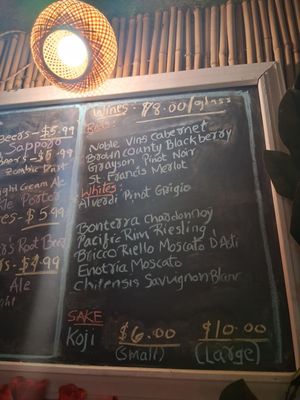 Beers - $5.99
Sapporo
Beers - $6.99
Zombie Dust
ght Cream Ale
le Porter
es - $5.99
r's Root Beer
rs - $4.99
Ale
ght
Wines: $8.00/glass
Reds:
Noble Vins Cabernet
Brown County Blackberry
Grayson Pinot Noir
St. Francis Merlot
Whites:
Alverdi Pinot Grigio
Bonterra Chardonnay
Pacific Rim Riesling
Bricco Riello Moscato D'Asti
Enotria Moscato
Chilensis Sauvignon Blanc
SAKE
Koji $6.00 $10.00
(Small) (Large)